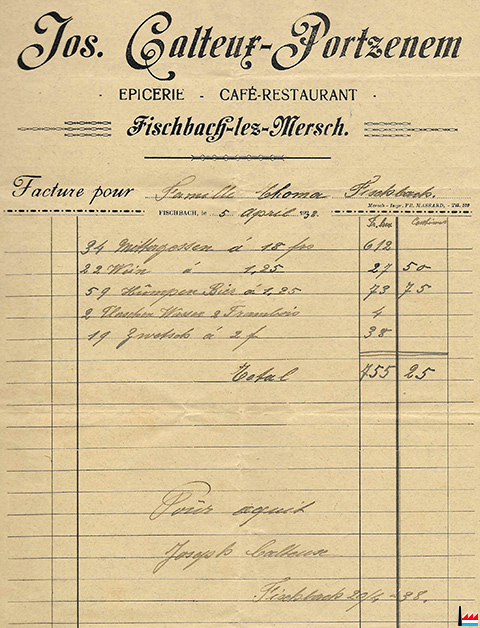 Jos. Calteux-Portzenem
· EPICERIE - CAFÉ-RESTAURANT ·
Fischbach-lez-Mersch.
Facture pour Famille Thoma Fischbach.
Mersch - Impr. FR. MASSARD, - Tél. 229
FISCHBACH, le 5 April 1938.
Frs
34 Mittagessen á 18 frs 612
22 Wein á 1,25 27 50
59 Humpen Bier á 1,25 73 75
2 Flaschen Wasser 2 Frambois 4
19 Zwetsch á 2 f 38
Total 755 25
Pour aquit
Joseph Calteux
Fischbach 20/4-38.